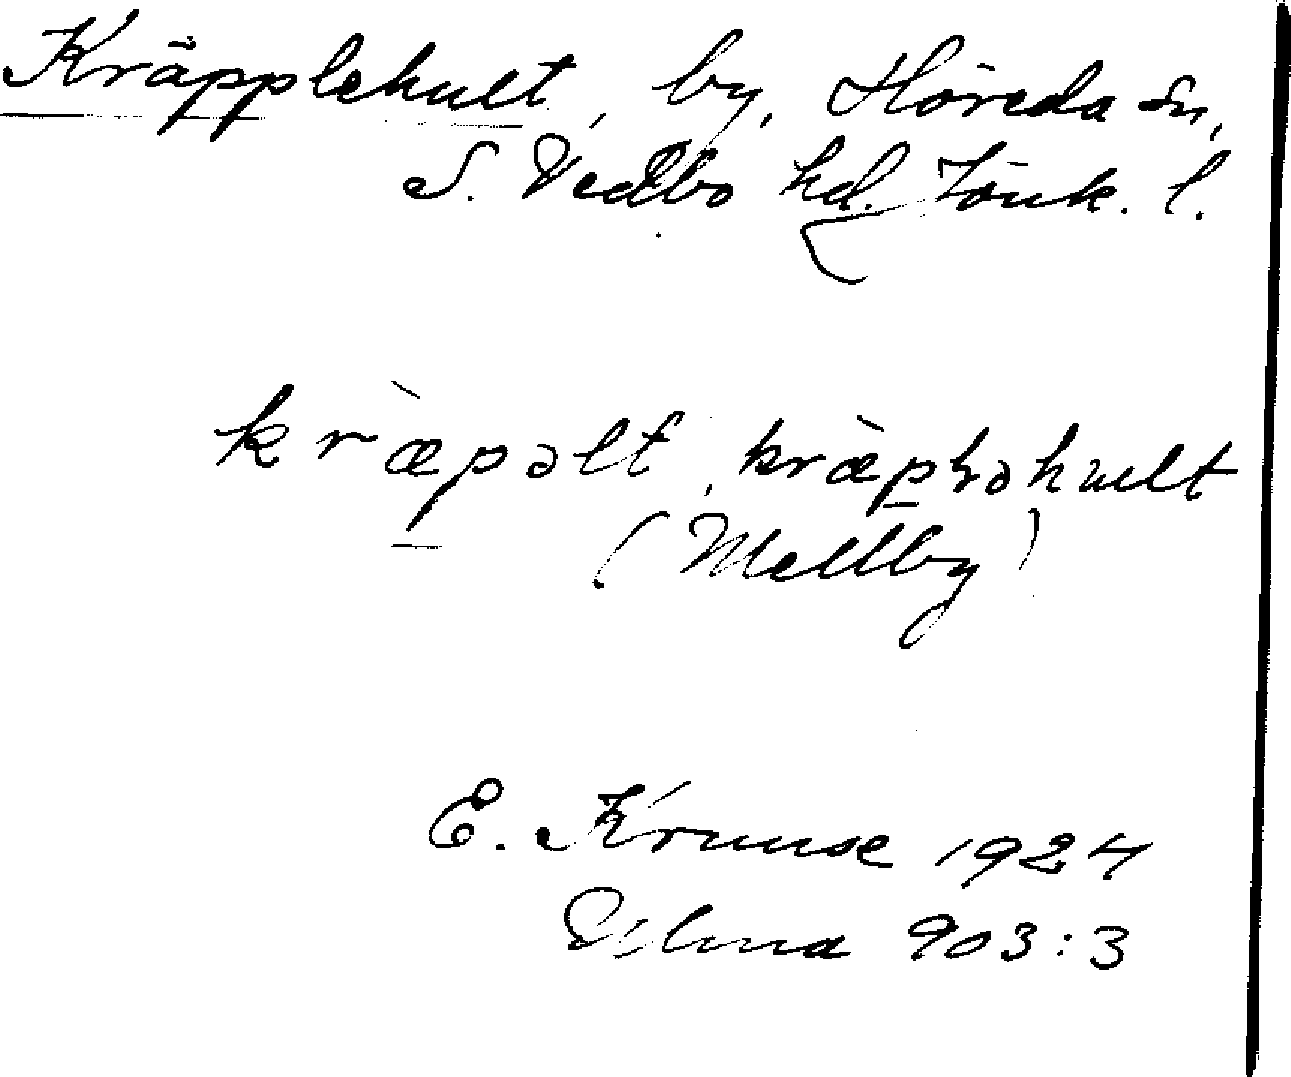 Kräpplehult, by, Höreda sn,
S. Vedbo hd. Jönk. l.
kræ̀pəlt, kræ̀pləhult
(Mellby)
E. Kruuse 1924
Ulma 903:3